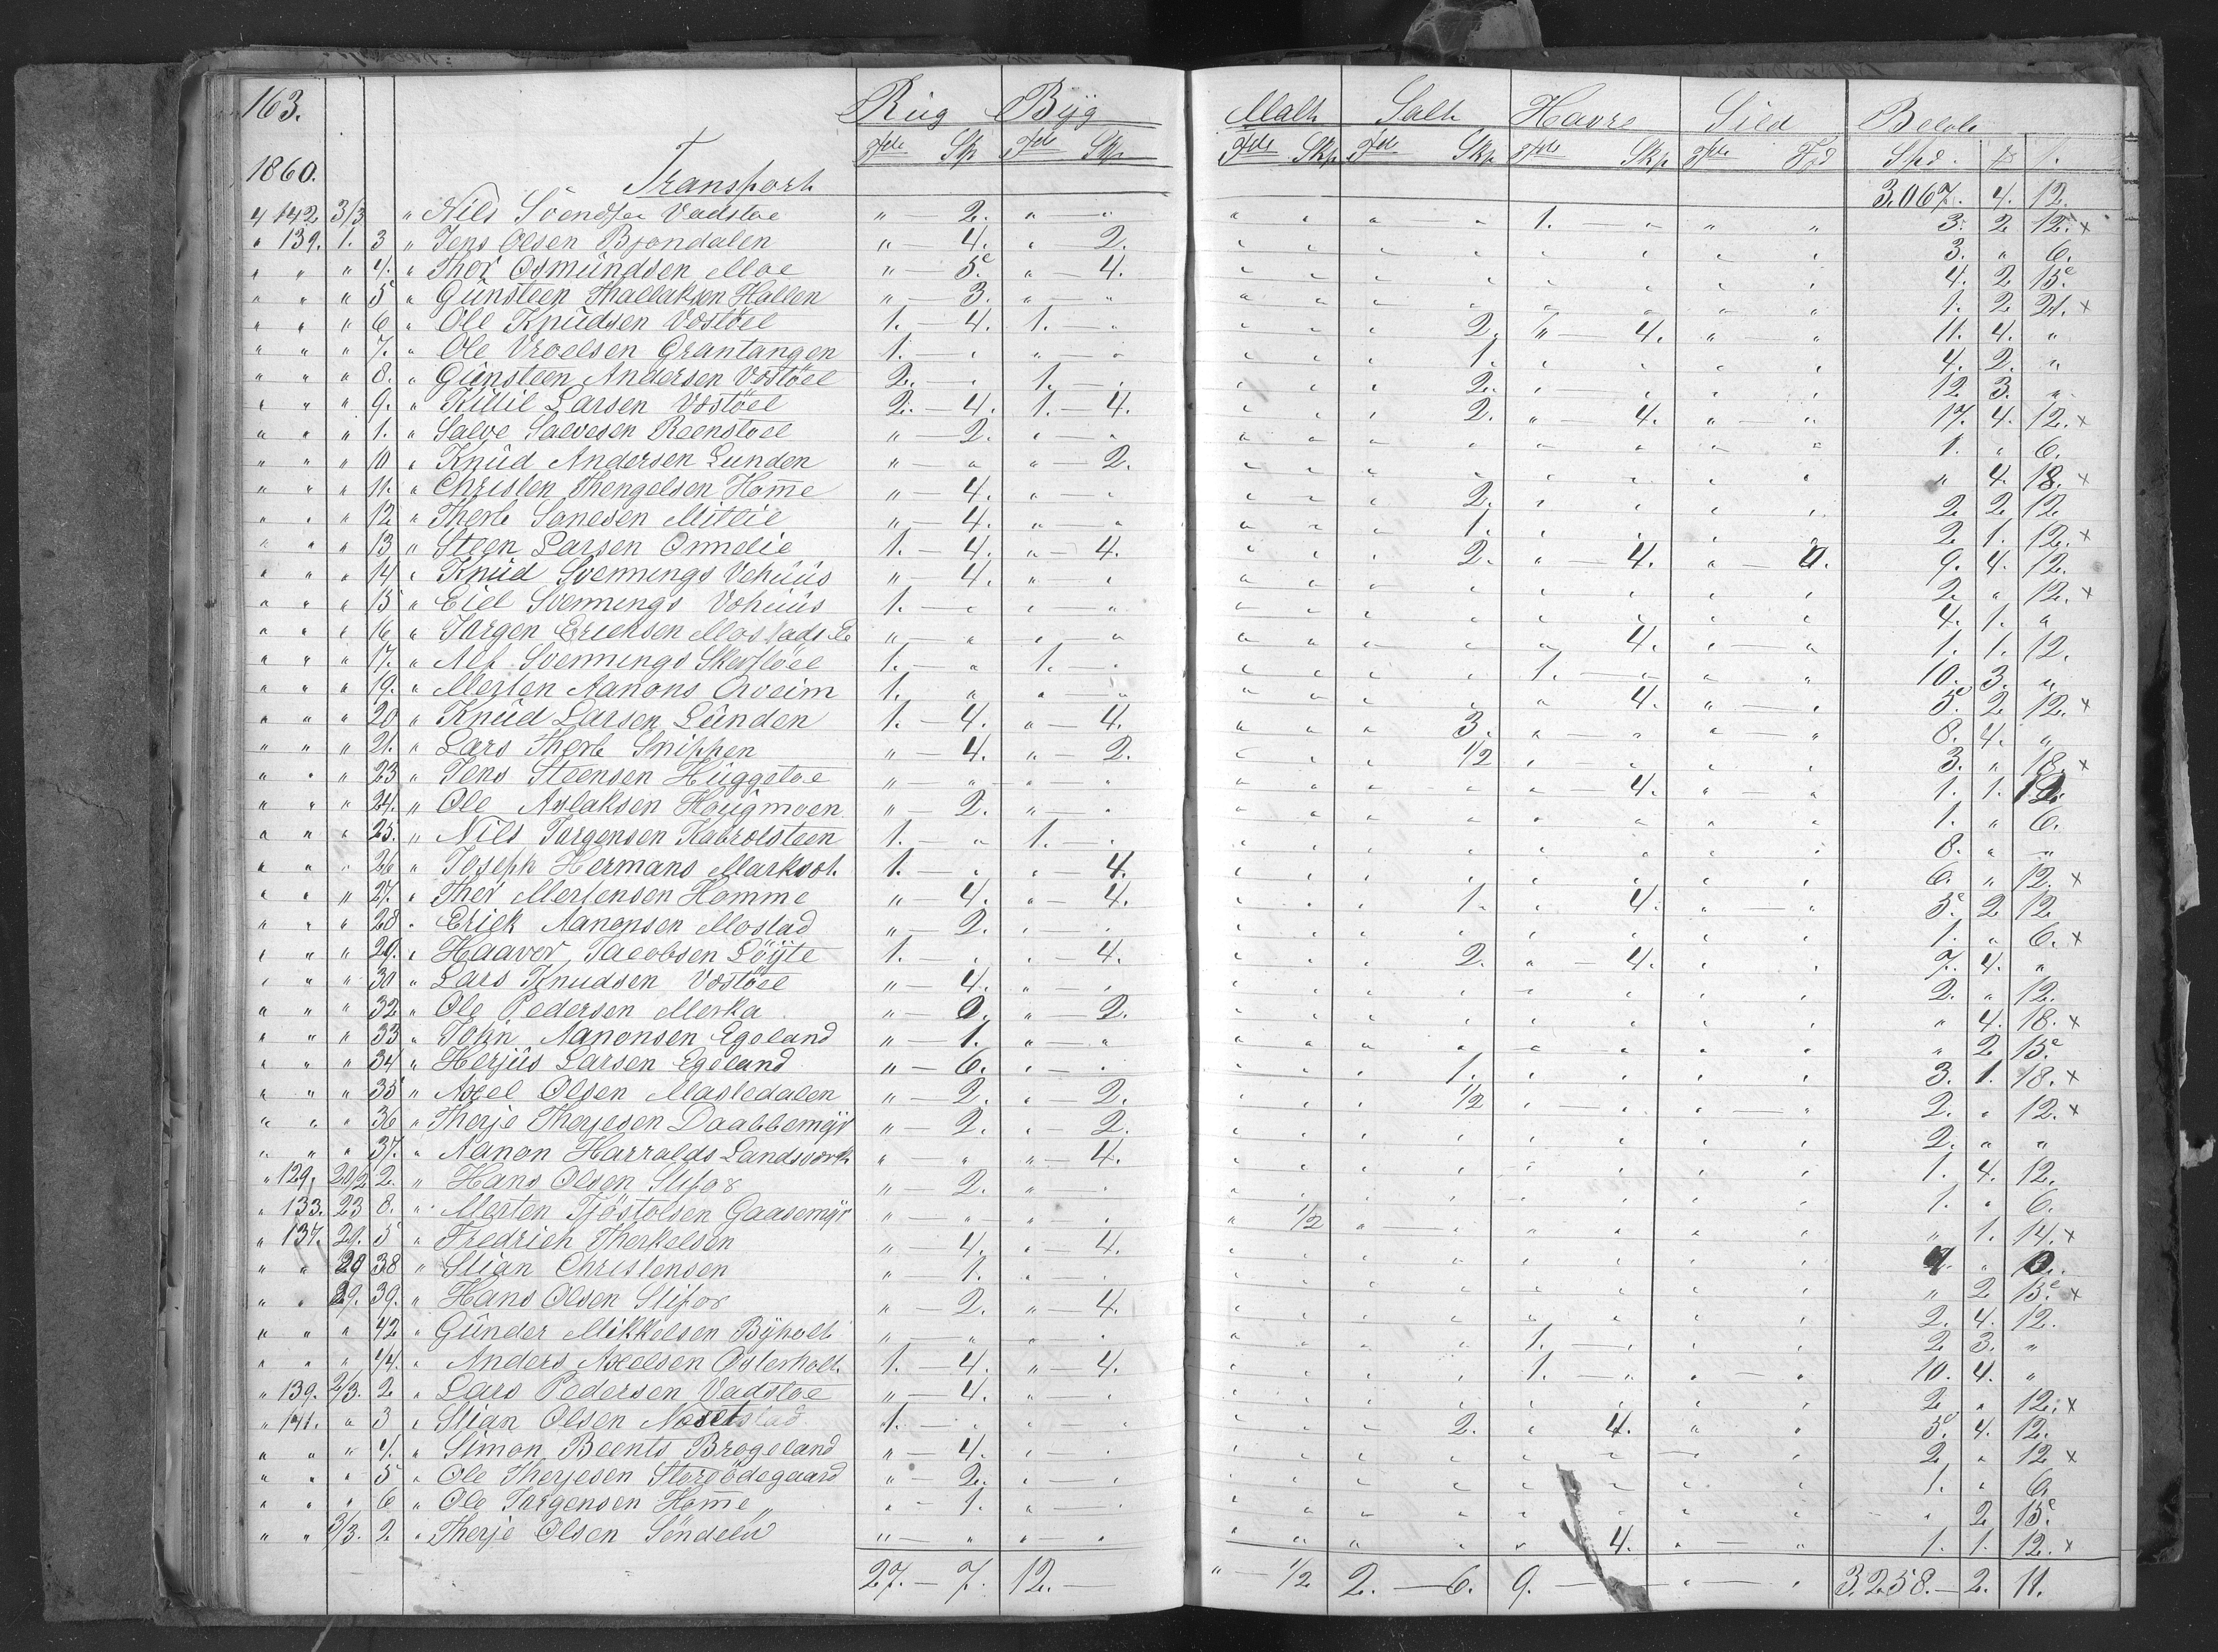 163. Rug Byg Malt Salt Havre Sild Beløb
1860. Transport Tdr Skp Tdr Skp Tdr Skp Tdr Skp Tdr Skp Tdr Spd. 3.067. 4. 12.
4 142 3/3 " Nils Svendsen Vadstoe " — 2. " " " " " " 1. — " " " 3. 2 12. x
" 139. 1. 3 " Jens Olsen Bjondalen " — 4. " 2. " " " " " " " " 3. " 6.
" " " 4. " Thor Osmundsen Moe " — 5. " — 4. " " " " " " " " 4. 2 15.
" " " 5 " Gunsteen Thallaksen Hallen " — 3. " — " " " " " " " " " 1. 2 21. x
" " " 6 " Ole Knudsen Vostöel 1. — 4. 1. " " " " 2. " — 4. " " 11. 4. "
" " " 7. " Ole Vroelsen Grantangen 1. — " " " " " " 1. " " " " 4. 2. "
" " " 8. " Gunsteen Andersen Vostöel 2. — " 1. — " " " " 2. " " " " 12 3. "
" " " 9. " Killil Larsen Vostöel 2. — 4. 1. — 4. " " " 2. " — 4. " " 17. 4. 12. x
" " " 1. " Salve Salvesen Reenstoel " — 2. " — " " " " " " " " " 1. " 6.
" " " 10 " Knud Andersen Lunden " — " " — 2. " " " " " " " " " 4. 18. x
" " " 11. " Christen Thengelsen Home " — 4. " — " " " " 2. " " " " 2 2 12
" " " 12 " Therb Sanesen Mitlie " — 4. " — " " " " 1. " " " " 2 1. 12. x
" " " 13 " Steen Larsen Omdelie 1. — 4. " — 4. " " " 2. " — 4. " — 4. 9. 4. 12.
" " " 14 " Knud Svennings Vehuus " — 4. " " " " " " " " " " 2 " 12. x
" " " 15 " Eiel Svennings Vehuus 1. — " " " " " " " " " " " 4. 1. "
" " " 16 " Jorgen Ericksen Mostads Ee " — " " — " " " " " " 4. " — " 1. 1. 12.
" " " 17. " Alf Svennings Skevstöel 1. — " 1. — " " " " " 1. — " " " 10. 3. "
" " " 19. " Merten Aanons Arveim 1. " " — " " " " " " 4. " — " 5. 2 12. x
" " " 20 " Knud Larsen Lunden 1. — 4. " — 4. " " " 3. " — " " — " 8. 4. "
" " " 21. " Lars Therb Snippen " — 4. " — 2. " " " 1/2 " — " " " 3. " 18. x
" " " 23 " Jens Steensen Huggetoe " — " — " " " " " " " — 4. " — " 1. 1. 12.
" " " 24. " Ole Aslaksen Hougmoen " 2. " — " " " " " " " " " 1. " 6.
" " " 25. " Nils Jorgensen Kabrolsteen 1. — " 1. — " " " " " " " " " 8. " "
" " " 26 " Joseph Hermans Marksol. 1. — " " — 4. " " " " " " " " 6. " 12. x
" " " 27. " Thor Mertensen Homme " — 4. " — 4. " " " 1. " 4. " — " 5. 2 12
" " " 28 " Erick Aanonsen Mostad " — 2. " " " " " " " " " " 1. " 6. x
" " " 29. " Haavor Jacobsen Löyte 1. — " " — 4. " " " 2. " — 4. " " 7. 4. "
" " " 30 " Lars Knudsen Vostöel " — 4. " — " " " " " " " " " 2. " 12.
" " " 32 " Ole Pedersen Merka " — 0. " — 2. " " " " " " " " " 4. 18. x
" " " 33 " John Aanonsen Egeland " — 1. " — " " " " " " " " " " 2 15.
" " " 34 " Herjus Larsen Egeland " — 6. " — " " " " 1. " " " " 3. 1. 18. x
" " " 35 " Axel Olsen Masledalen " — 2. " — 2. " " " 1/2 " — " " — " 2. " 12. x
" " " 36 " Therje Therjesen Daabbemyr " — 2. " — 2. " " " " " " " " 2. " "
" " " 37. " Aanon Harralds Landsverk " " " — 4. " " " " " " " " 1. 4. 12.
" 129. 20/2 2. " Hans Olsen Stifos " — 2. " — " " " " " " " " " 1. " 6.
" 133. 23 8. " Merten Tjöstolsen Gaasemyr " — " — " " " 1/2 " — " " " " " " 1. 14. x
" 137. 29. 5 " Fredrich Therkelsen " 4. " — 4. " " " " " " " "
" " 29 38 " Stian Christensen " — 1. " — " " " " " " " " " " 2 15. x
" " 29. 39. " Hans Olsen Stifos " — 2. " — 4. " " " " " " " " 2. 4. 12.
" " " 42 " Gunder Mikkelsen Byholt " — " — " " " " " 1. — " " " 2 3. "
" " " 44. " Anders Axelsen Osterholt. 1. — 4. " — 4. " " " " 1. — " " — " 10. 4. "
" 139. 2/3. 2. " Lars Pedersen Vadstoe " — 4. " " " " " " " " " " 2 " 12. x
" 141. " 3 " Stian Olsen 1. — " " — " " " " 2. " 4. " " 5. 4. 12.
" " " 4. " Simon Beents Brogeland " — 4. " — " " " " " " " " " 2 " 12 x
" " " 5 " Ole Therjesen Storödegaard " — 2. " — " " " " " " " " " 1. " 6.
" " " 6 " Ole Jorgensen Home " " - 1. " — " " " " " " " " " " 2 15.
" " 3/3. 2 " Therje Olsen Söndelü " — " " " " " " " " 4. " — " 1. 1. 12. x
27. — 7. 12. — " — 1/2 2. — 6. 9. — " — " 3.258. — 2. 11.